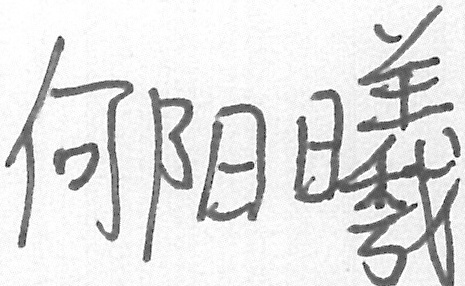 何阳曦